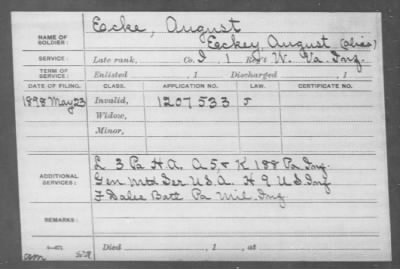 NAME OF SOLDIER: Ecke, August
Eckey, August (alias)
SERVICE: Late rank, Co. I, 1 Reg't W. Va. Inf.
TERM OF SERVICE: Enlisted , 1 Discharged , 1
DATE OF FILING. CLASS. APPLICATION NO. LAW. CERTIFICATE NO.
1898 May 23 Invalid, 1207533
Widow,
Minor,
ADDITIONAL SERVICES: L 3 Pa H.A. A 5, & K 188 Pa Inf.
Gen Mtd Ser U.S.A. H 9 U.S. Inf
F Batt Pa Mil. Inf
REMARKS:
Died , 1 , at